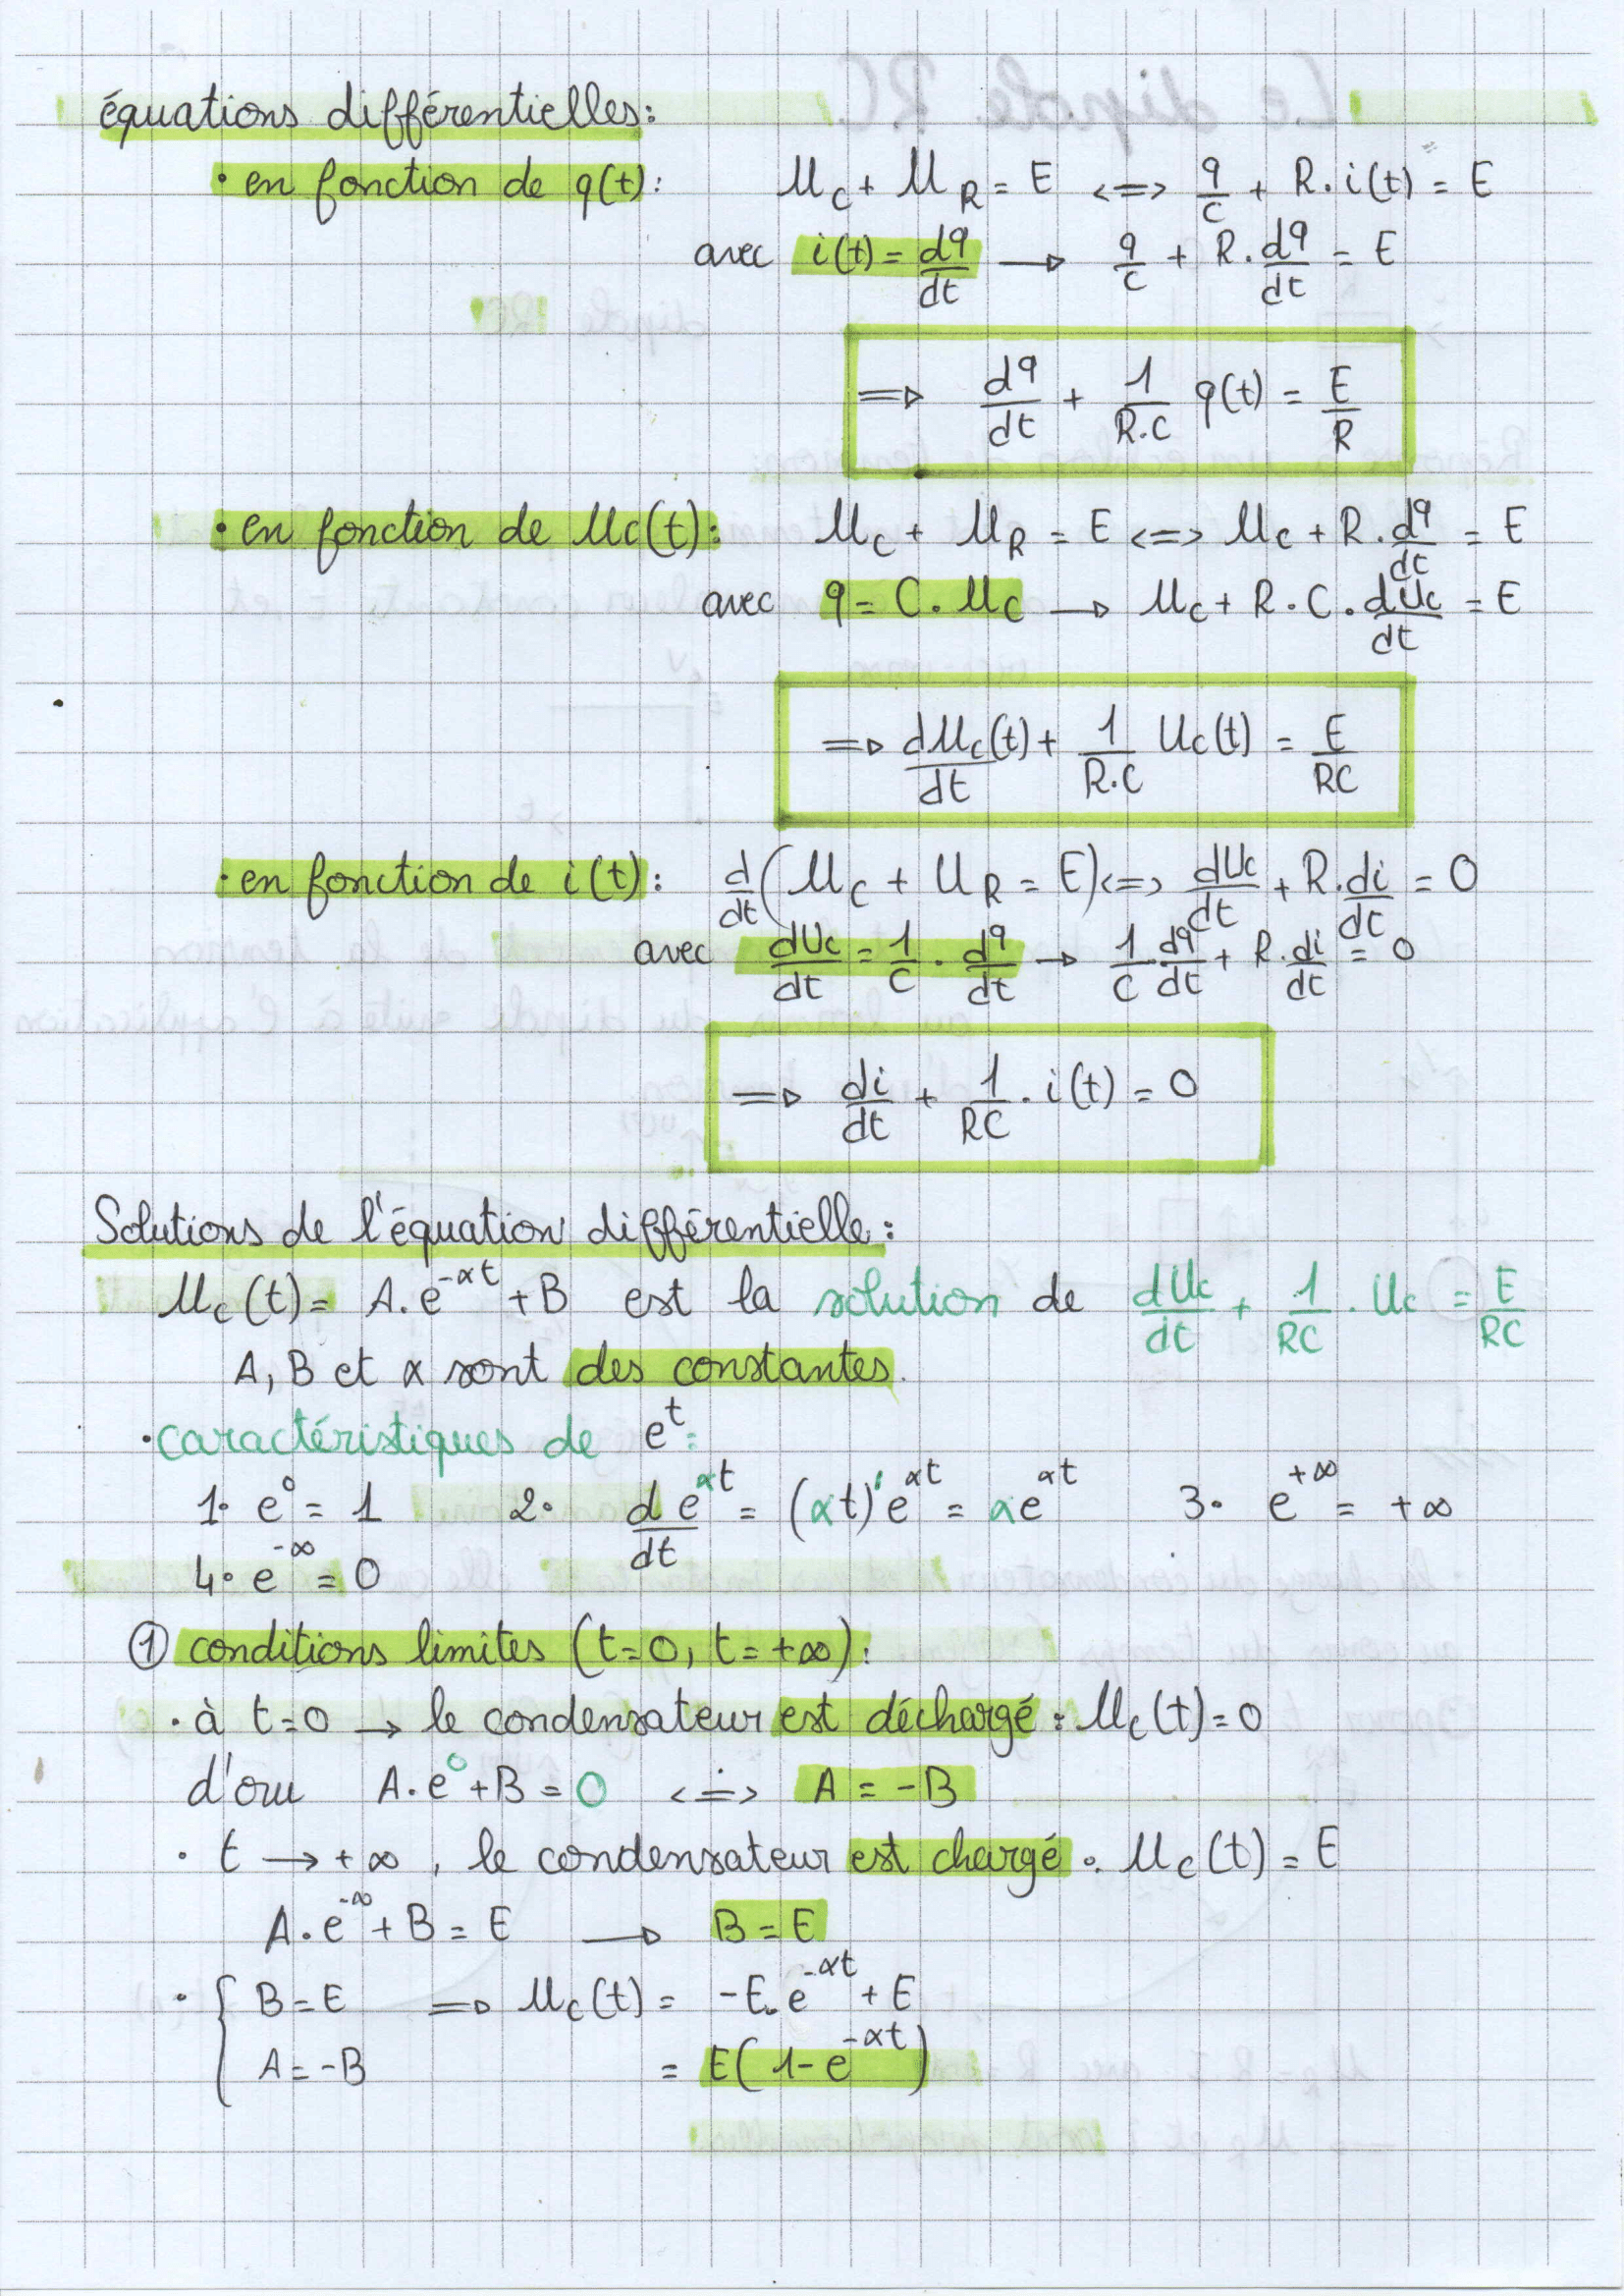 équations différentielles:
• en fonction de q(t): Uc + UR = E <=> q/C + R.i(t) = E
avec i(t) = dq/dt → q/C + R.dq/dt = E
=> dq/dt + 1/R.C q(t) = E/R
• en fonction de Uc(t): Uc + UR = E <=> Uc + R.dq/dt = E
avec q = C.Uc → Uc + R.C.dUc/dt = E
=> dUc(t)/dt + 1/R.C Uc(t) = E/RC
• en fonction de i(t): d/dt(Uc + UR = E) <=> dUc/dt + R.di/dt = 0
avec dUc/dt = 1/C . dq/dt → 1/C.dq/dt + R.di/dt = 0
=> di/dt + 1/RC . i(t) = 0
Solutions de l'équation différentielle:
Uc(t) = A.e^-αt + B est la solution de dUc/dt + 1/RC . Uc = E/RC
A, B et α sont des constantes.
• caractéristiques de e^t:
1• e^0 = 1 2• d e^αt/dt = (αt)' e^αt = αe^αt 3• e^+∞ = +∞
4• e^-∞ = 0
① conditions limites (t=0, t=+∞):
• à t=0 → le condensateur est déchargé : Uc(t)=0
d'ou A.e^0 + B = 0 <=> A = -B
• t → +∞, le condensateur est chargé : Uc(t) = E
A.e^-∞ + B = E → B = E
• { B = E => Uc(t) = -E.e^-αt + E
A = -B = E(1-e^-αt)